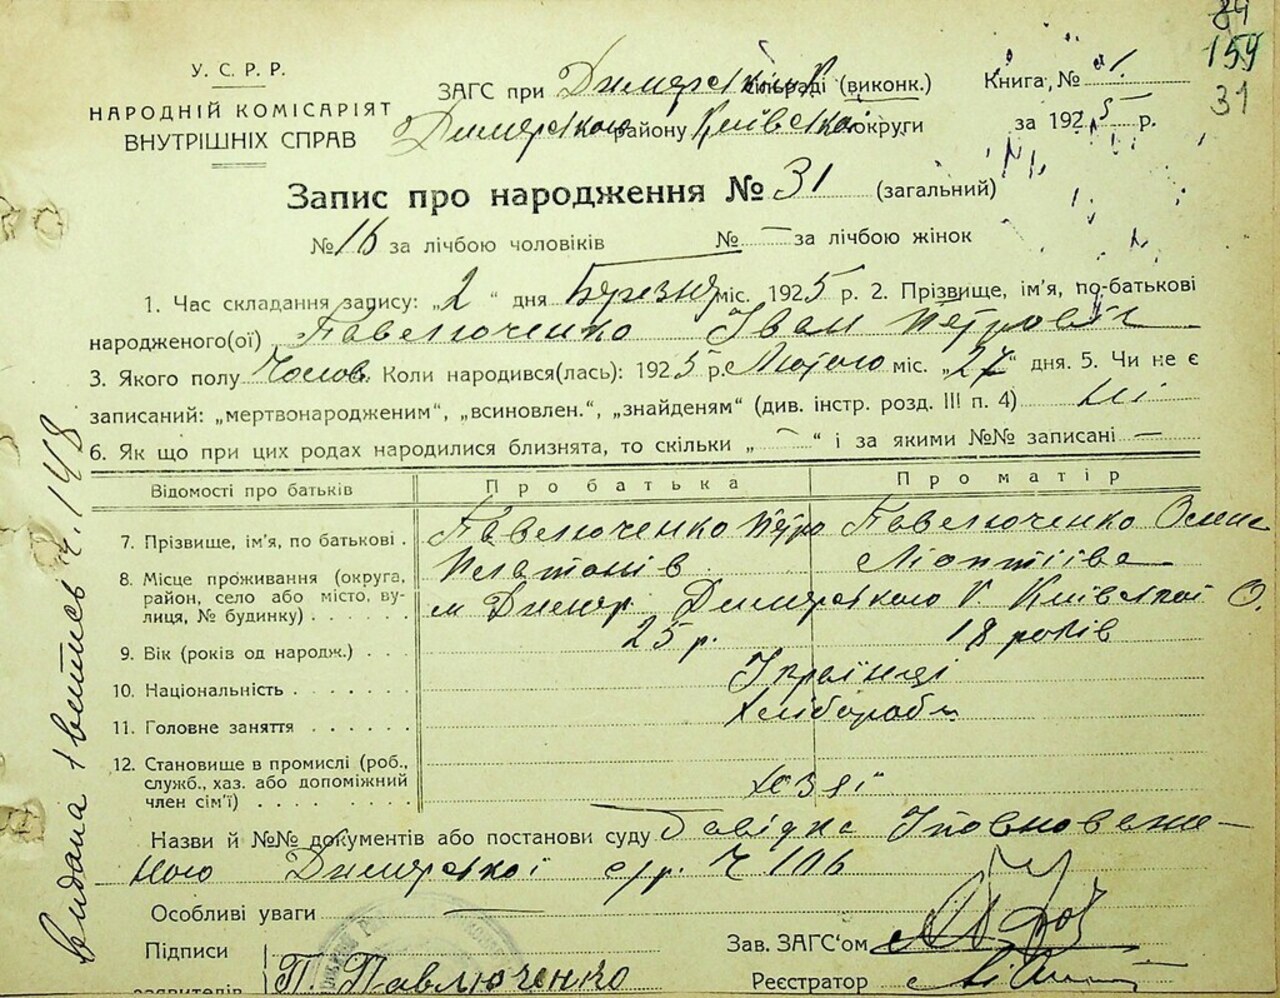 84
159
31
У. С. Р. Р.
НАРОДНІЙ КОМІСАРІЯТ
ВНУТРІШНІХ СПРАВ
ЗАГС при Димерському сільраді (виконк.)
Димерського району Київської округи
Книга № 1
за 1925 р.
Запис про народження № 31 (загальний)
№ 16 за лічбою чоловіків № — за лічбою жінок
1. Час складання запису: „2“ дня Березня міс. 1925 р. 2. Прізвище, ім'я, по-батькові
народженого(ої) Павелюченко Іван Петровіч
3. Якого полу Чолов. Коли народився(лась): 1925 р. Лютого міс. „27“ дня. 5. Чи не є
записаний: „мертвонародженим“, „всиновлен.“, „знайденям“ (див. інстр. розд. III п. 4) Ні
6. Як що при цих родах народилися близнята, то скільки „—“ і за якими №№ записані —
Відомості про батьків Про батька Про матір
7. Прізвище, ім'я, по батькові . Павелюченко Петро Платонів Павелюченко Олена
8. Місце проживання (округа, район, село або місто, вулиця, № будинку) . . . . . . м Димер Димерського Р. Київської О.
9. Вік (років од народж.) . . . 25 р. 18 років
10. Національність . . . . . . . Українці
11. Головне заняття . . . . . . Хлібороби
12. Становище в промислі (роб., служб., хаз. або допоміжний член сім'ї) . . . . . . . . . Хазяї
Назви й №№ документів або постанови суду Довідка Уповноваже-
ного Димерської с/р. Ч 106
Особливі уваги —
Підписи
заявителів П. Павлюченко
Зав. ЗАГС'ом
Реєстратор
Видана 1 витись ч. 148